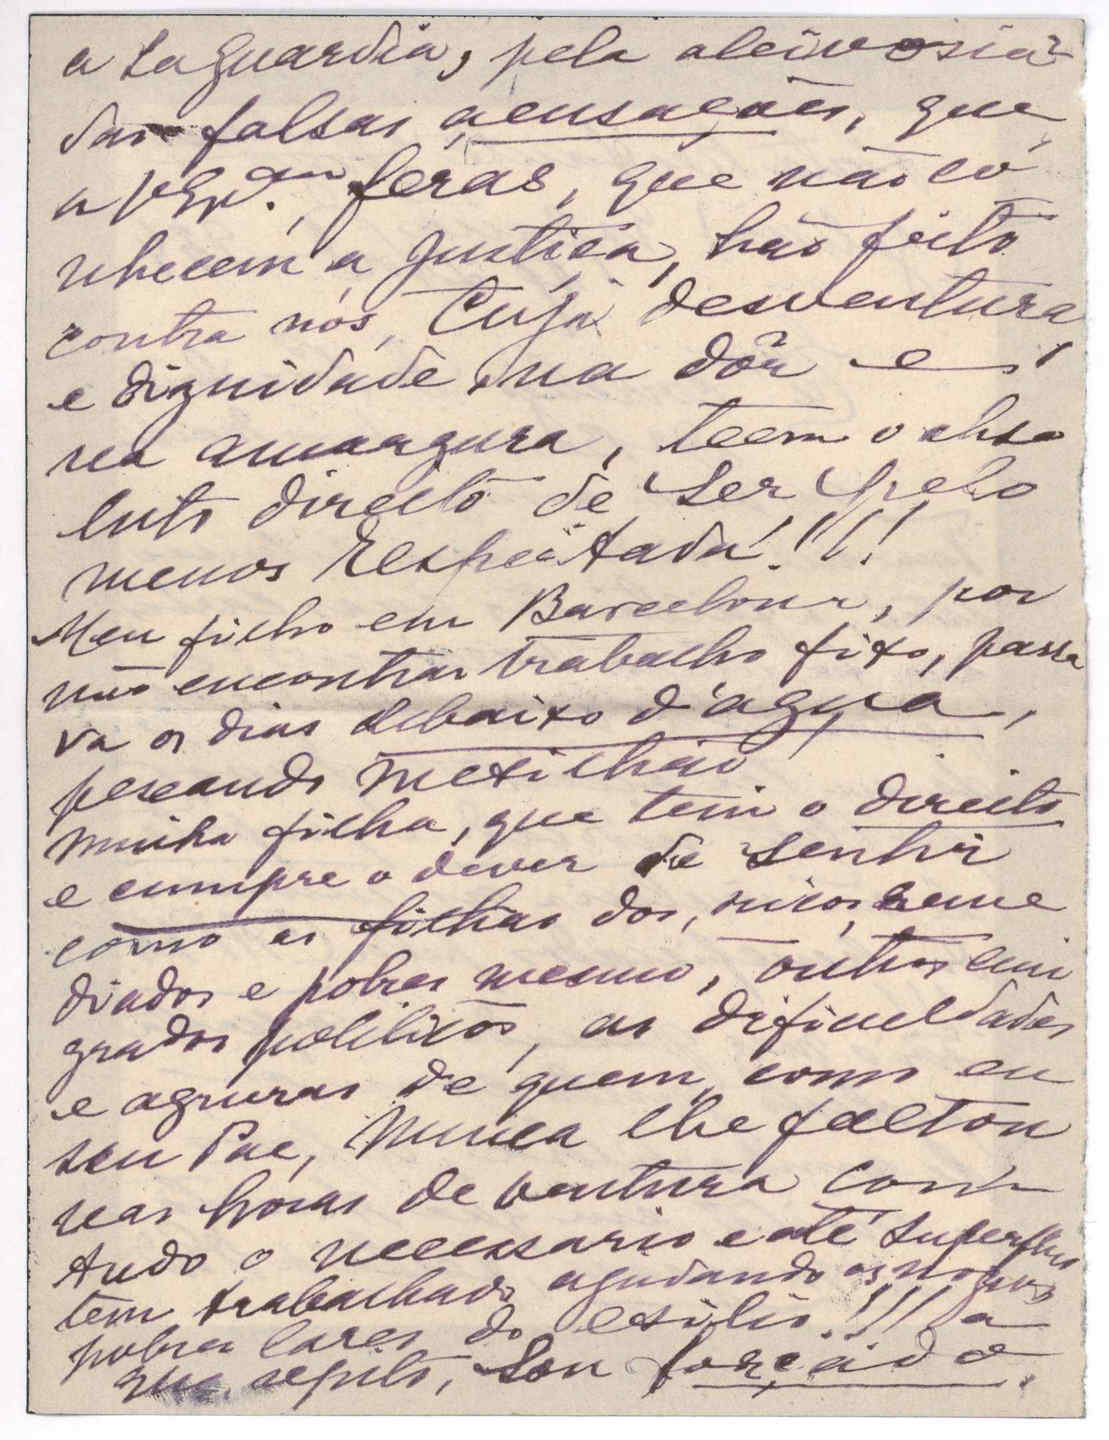 a La Guardia, pela aleivosia
das falsas acusações, que
feras, que não co
nhecem a Justiça, hão feito
contra nós, Cuja desventura
e dignidade na dôr e
na amargura, teem o abso
luto direito de Ser pelo
menos Respeitada!!!!
Meu filho em Barcelona, por
não encontrar trabalho fixo, passa
va os dias debaixo d'agua,
pescando mexilhão
Minha filha, que tem o direito
e cumpre o dever de Sentir
como as filhas dos, ricos, reme
diados e pobres mesmo, outros emi
grados politicos, as dificuldades
e agruras de quem, como eu
seu Pae, Nunca lhe faltou
nas horas de ventura com
tudo o necessario e até Superfluo
tem trabalhado ajudando os nossos
pobres lares do exilio!!! a
que, repito, Sou forçado.